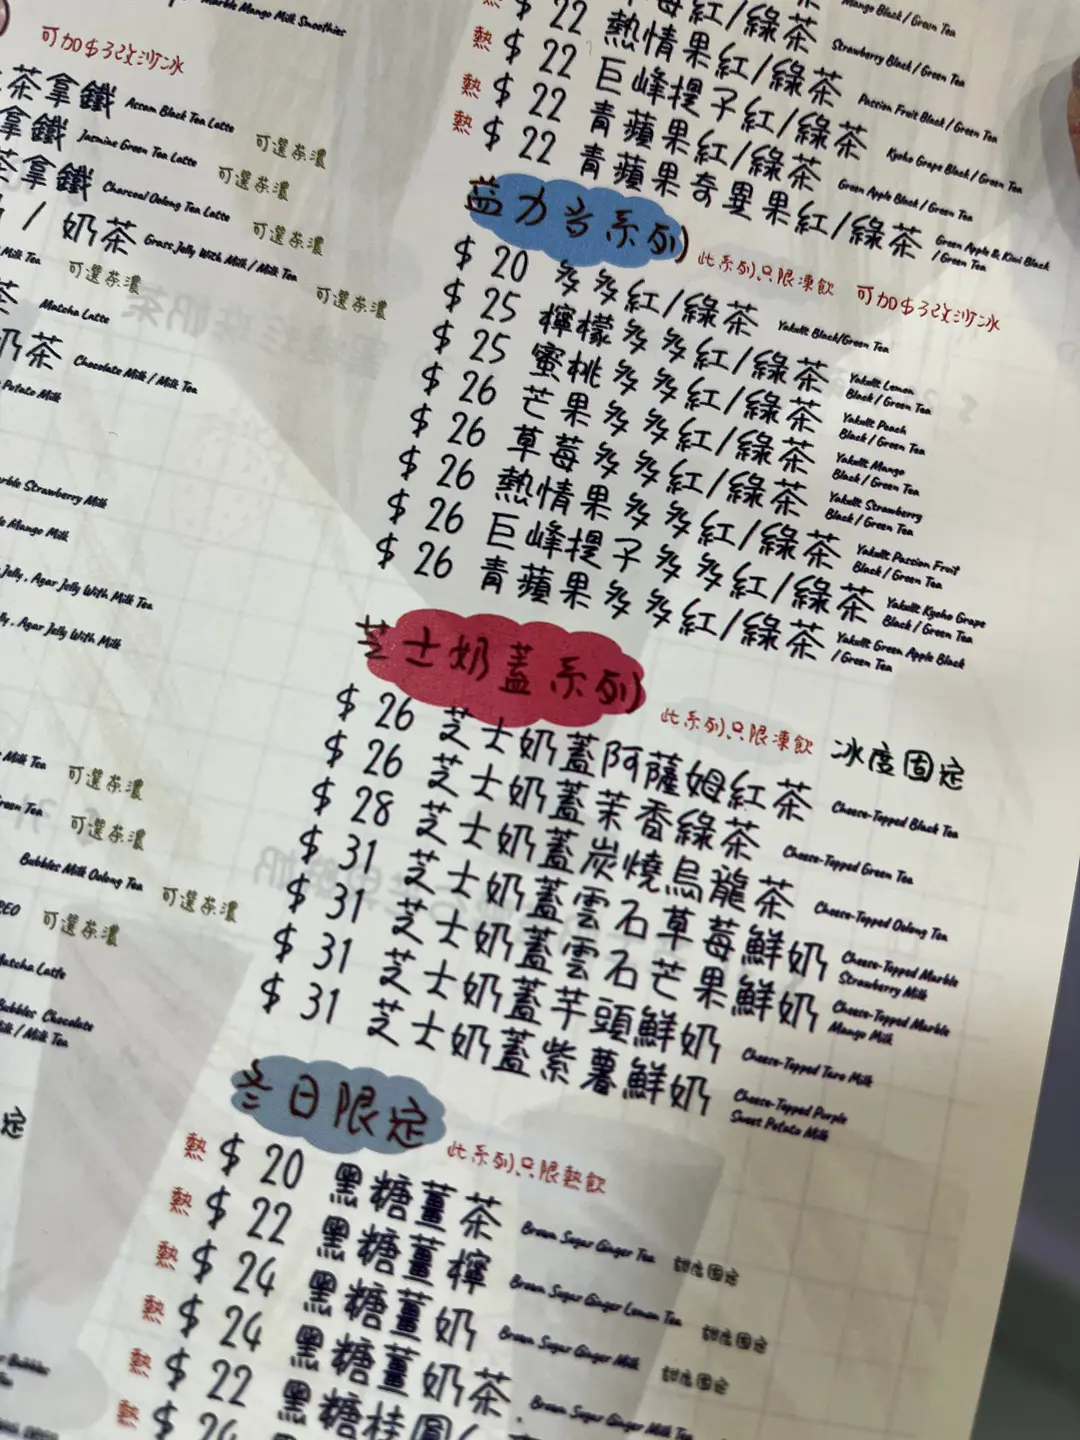 Marble Mango Milk Smoothies
可加$3改沙冰
茶拿鐵 Assam Black Tea Latte 可選茶濃
拿鐵 Jasmine Green Tea Latte 可選茶濃
茶拿鐵 Charcoal Oolong Tea Latte 可選茶濃
/ 奶茶 Grass Jelly With Milk / Milk Tea 可選茶濃
Milk Tea 可選茶濃
Matcha Latte
奶茶 Chocolate Milk / Milk Tea
Potato Milk
Marble Strawberry Milk
Mango Milk
Jelly, Agar Jelly With Milk Tea
, Agar Jelly With Milk
Milk Tea 可選茶濃
Green Tea 可選茶濃
Bubbles Milk Oolong Tea 可選茶濃
可選茶濃
Matcha Latte
Bubbles Chocolate
Milk / Milk Tea
定
Mango Black / Green Tea
$ 22 草莓紅/綠茶 Strawberry Black / Green Tea
熱 $ 22 熱情果紅/綠茶 Passion Fruit Black / Green Tea
熱 $ 22 巨峰提子紅/綠茶 Kyoho Grape Black / Green Tea
熱 $ 22 青蘋果紅/綠茶 Green Apple Black / Green Tea
$ 22 青蘋果奇異果紅/綠茶 Green Apple & Kiwi Black / Green Tea
益力多系列 此系列只限凍飲 可加$3改沙冰
$ 20 多多紅/綠茶 Yakult Black/Green Tea
$ 25 檸檬多多紅/綠茶 Yakult Lemon Black / Green Tea
$ 25 蜜桃多多紅/綠茶 Yakult Peach Black / Green Tea
$ 26 芒果多多紅/綠茶 Yakult Mango Black / Green Tea
$ 26 草莓多多紅/綠茶 Yakult Strawberry Black / Green Tea
$ 26 熱情果多多紅/綠茶 Yakult Passion Fruit Black / Green Tea
$ 26 巨峰提子多多紅/綠茶 Yakult Kyoho Grape Black / Green Tea
$ 26 青蘋果多多紅/綠茶 Yakult Green Apple Black / Green Tea
芝士奶蓋系列 此系列只限凍飲 冰度固定
$ 26 芝士奶蓋阿薩姆紅茶 Cheese-Topped Black Tea
$ 26 芝士奶蓋茉香綠茶 Cheese-Topped Green Tea
$ 28 芝士奶蓋炭燒烏龍茶 Cheese-Topped Oolong Tea
$ 31 芝士奶蓋雲石草莓鮮奶 Cheese-Topped Marble Strawberry Milk
$ 31 芝士奶蓋雲石芒果鮮奶 Cheese-Topped Marble Mango Milk
$ 31 芝士奶蓋芋頭鮮奶 Cheese-Topped Taro Milk
$ 31 芝士奶蓋紫薯鮮奶 Cheese-Topped Purple Sweet Potato Milk
冬日限定 此系列只限熱飲
熱 $ 20 黑糖薑茶 Brown Sugar Ginger Tea 甜度固定
熱 $ 22 黑糖薑檸 Brown Sugar Ginger Lemon Tea 甜度固定
熱 $ 24 黑糖薑奶 Brown Sugar Ginger Milk 甜度固定
熱 $ 24 黑糖薑奶茶 Brown Sugar Ginger Milk Tea
熱 $ 22 黑糖桂圓
熱 $ 24